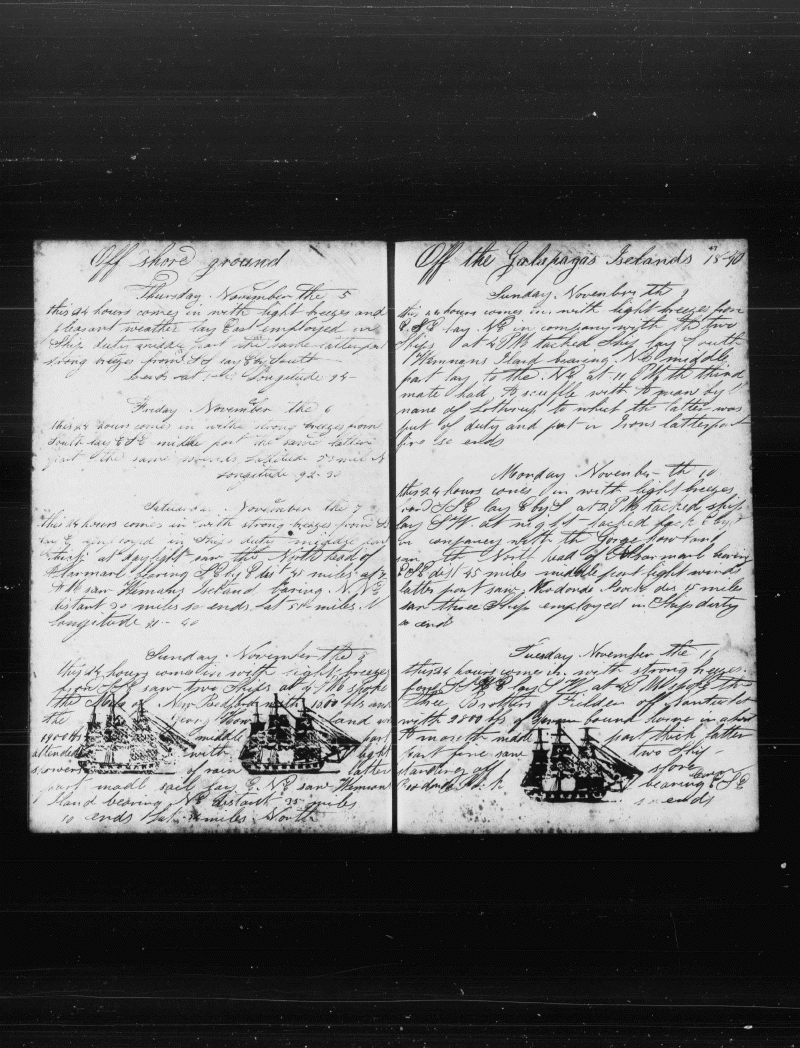 Off shore ground
Thursday November the 5
this 24 hours comes in with light breezes and
pleasant weather lay East employed in
Ships duty middle part the same latter part
strong breezes from S E lay E by South
Longitude 94
Friday November the 6
this 24 hours comes in with strong breezes from
South lay E S E middle part the same latter
part the same so ends Latitude
Longitude 92
Saturday November the 7
this 24 hours comes in with strong breezes from
employed in Ships duty middle part
at daylight saw the North head of
bearing miles at 7
A M saw Island baring N N E
distant 30 miles so ends Lat miles N
Longitude
Sunday November the 8
this 24 hours comes in with light breezes
from saw two Ships at 4 P M spoke
the of New Bedford with 1200 bbls and
the town and
1900 bbls middle part
attended with light
showers of rain latter
part made sail lay saw
Island bearing N E distant 35 miles
so ends Lat miles North
Off the Galapagas Iselands 1840
Sunday November th 9
this 24 hours comes in with light breezes from
E S E lay N E in company with the two
Ships at 4 P M tacked Ship lay South
Island bearing N E middle
part lay to the N E at 11 P M th third
mate had A scuffle with A man by
name of to which the latter was
put of duty and put in Irons latter part
fine so ends
Monday November th 10
this 24 hours comes in with light breezes
from S S E lay E by S at 2 P M tacked ship
lay S W at night tacked back E by S
in company with the George
saw the North head of bearing
E S E dist 45 miles middle part light winds
latter part saw Rodondo Rock dis 15 miles
saw three Ships employed in Ships duty
so ends
Tuesday November the 11
this 24 hours comes in with strong breezes
from lay at P M spoke the
Three Brothers of Nantucket
with 2800 bbls of bound home in about
A month middle part thick latter
part fine saw two Ships
standing off shore
Rodondo Rock bearing E S E
so ends